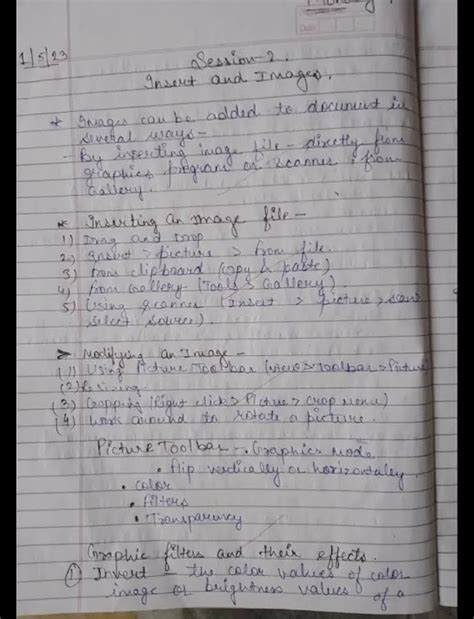 Monday
Date
1/5/23
Session-2.
Insert and Images.
* Images can be added to document in
several ways-
- By inserting image file - directly from
graphics program or scanner, from
Gallery.
* Inserting an image file -
1) Drag and Drop
2) Insert > picture > from file.
3) from clipboard (copy & paste)
4) from Gallery- (Tools > Gallery).
5) Using scanner (Insert > picture > scan
select source).
> Modifying an Image -
(1) Using Picture ToolBar (view > Toolbar > Picture
(2) Resizing
(3) Cropping (Right click > Picture > Crop Menu)
(4) Work around to rotate a picture.
Picture ToolBar - Graphics Mode
• flip vertically or horizontaley
• color
• filters
• Transparency
Graphic filters and their effects.
① Invert - the color values of color
image or brightness values of a